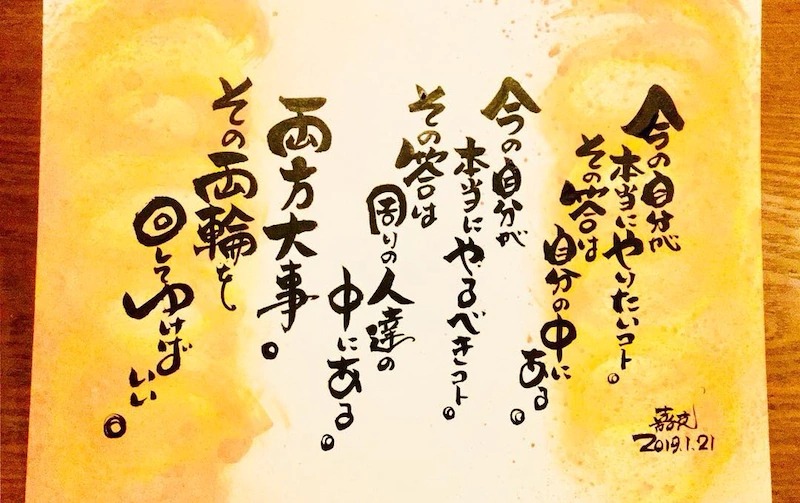 今の自分が
本当にやりたいコト。
その答は
自分の中に
ある。
今の自分が
本当にやるべきコト。
その答は
周りの人達の
中にある。
両方大事。
その両輪を
回してゆけば
いい。
2019.1.21